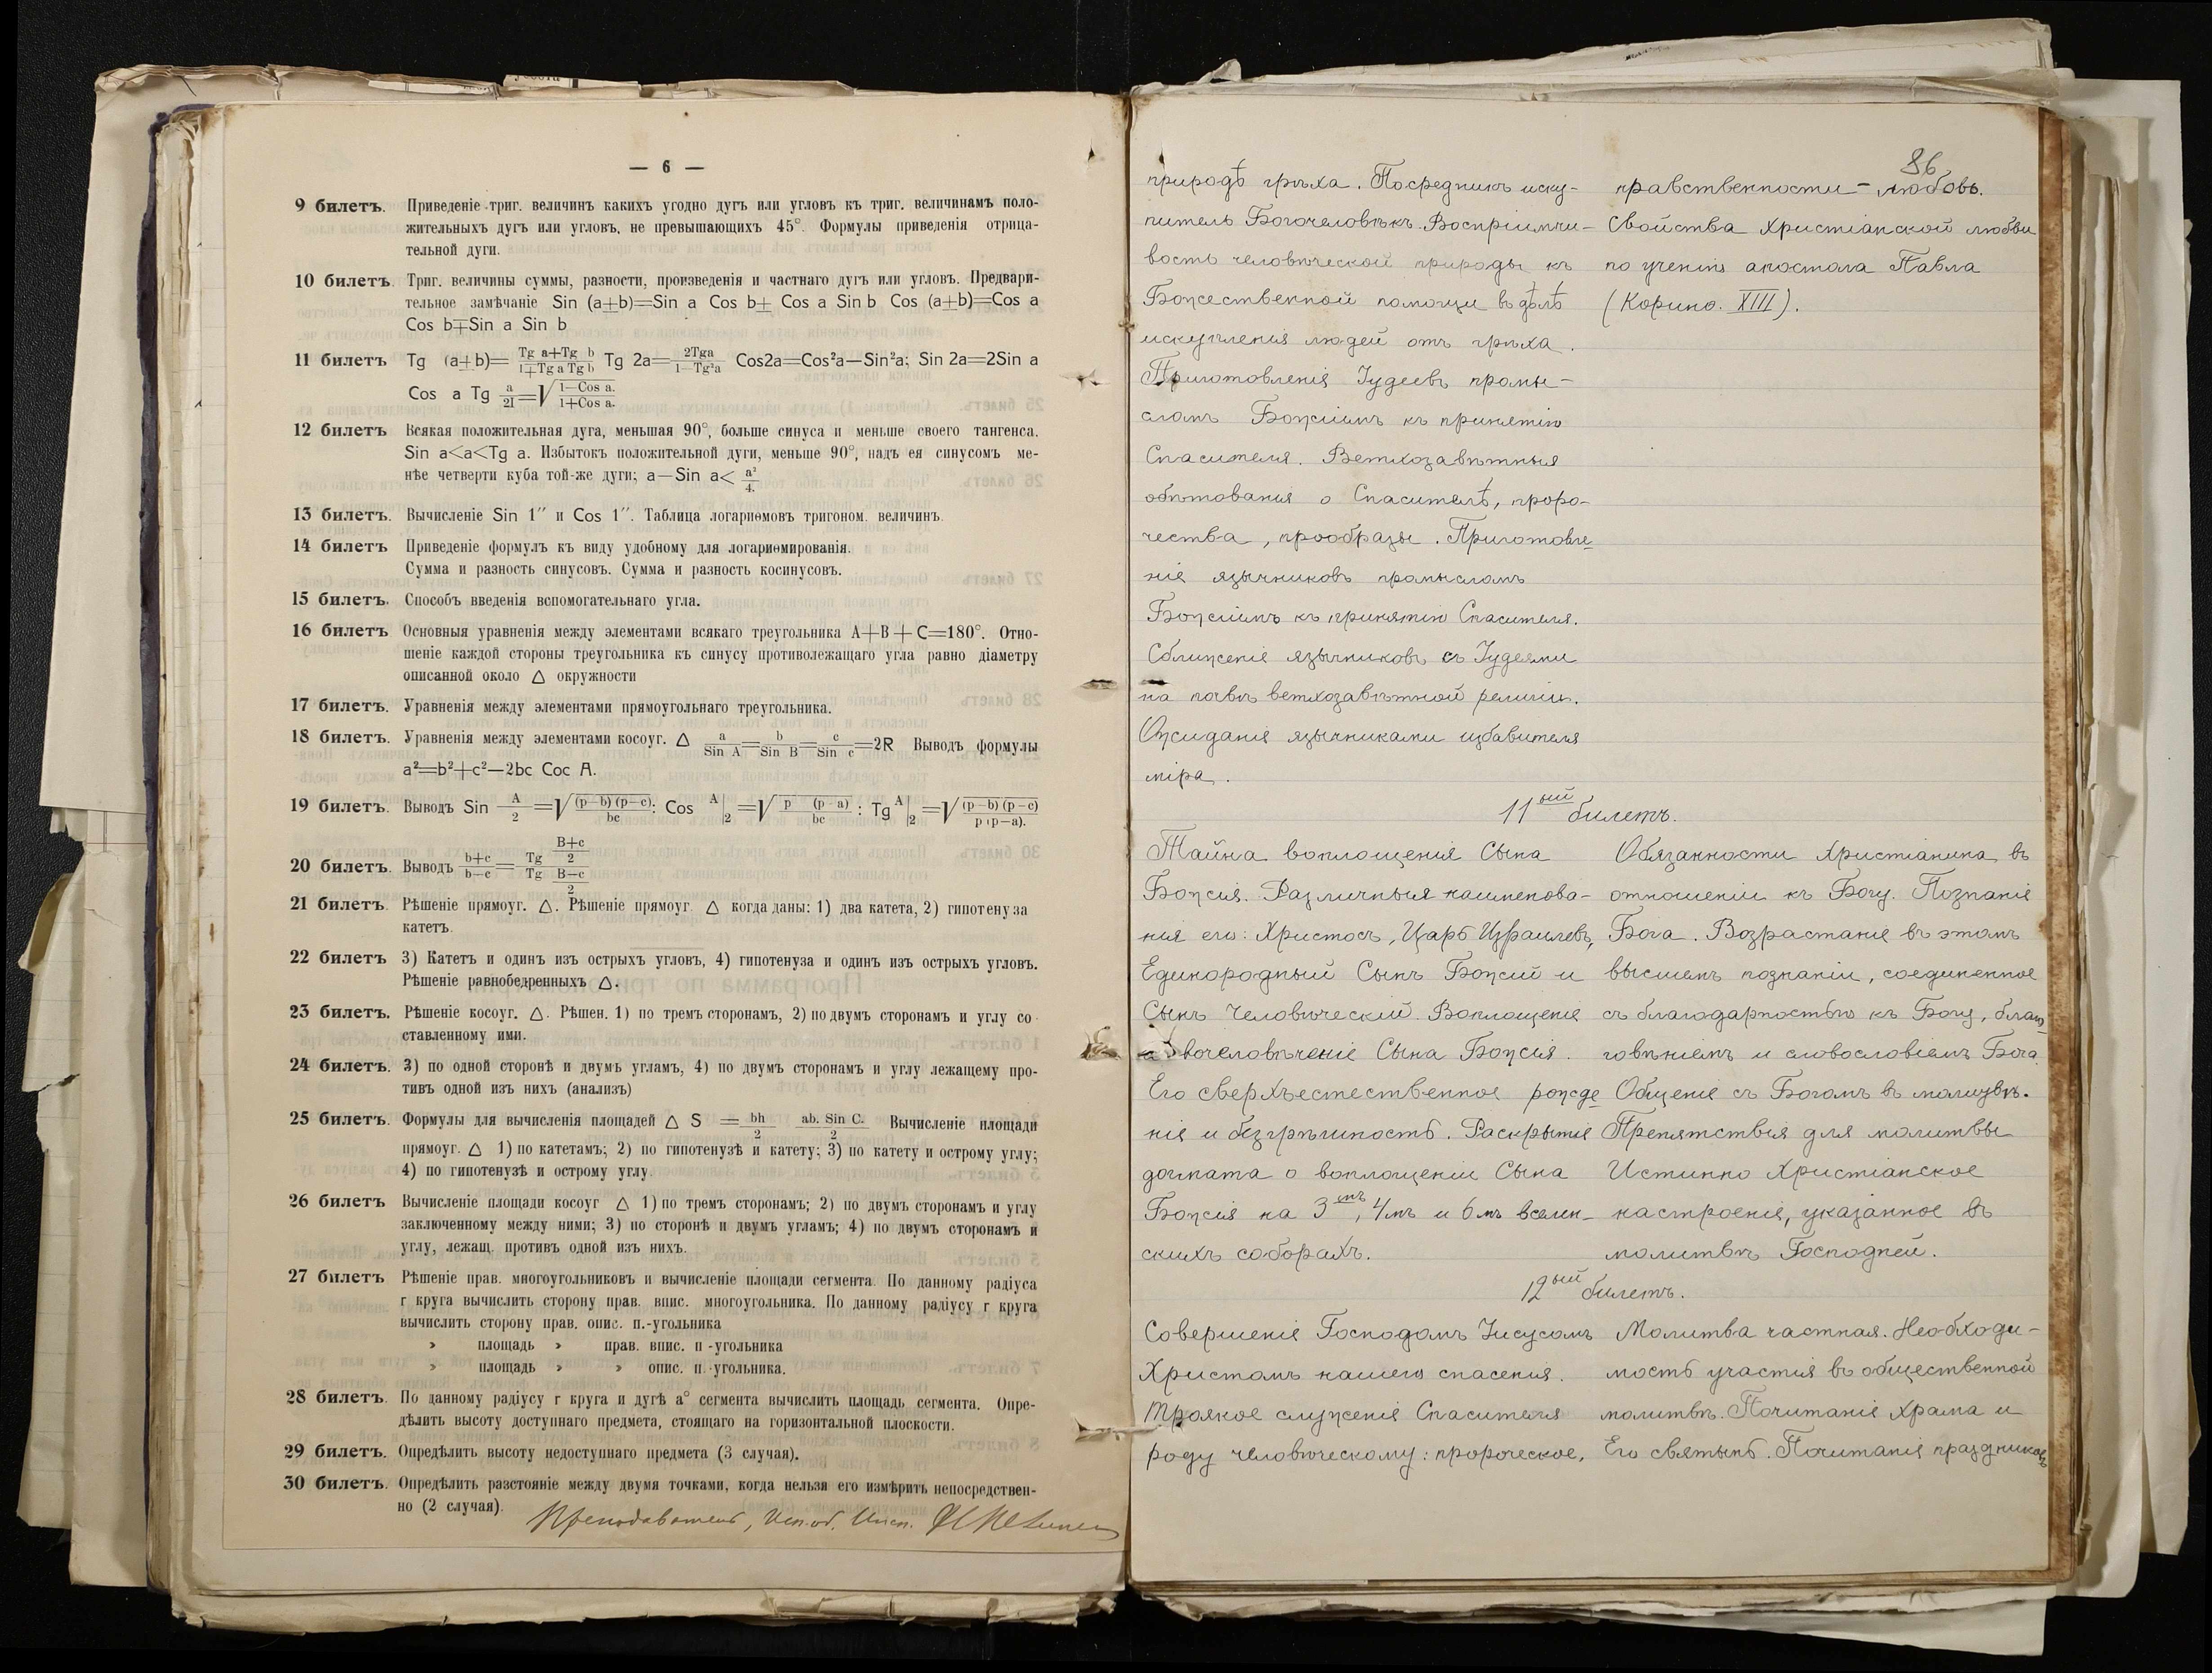 — 6 —
9 билетъ. Приведеніе триг. величинъ какихъ угодно дугъ или угловъ къ триг. величинамъ поло-
жительныхъ дугъ или угловъ, не превышающихъ 45°. Формулы приведенія отрица-
тельной дуги.
10 билетъ Триг. величины суммы, разности, произведенія и частнаго дугъ или угловъ. Предвари-
тельное замѣчаніе Sin (a±b)=Sin a Cos b± Cos a Sin b Cos (a±b)=Cos a
Cos b∓Sin a Sin b
11 билетъ Tg (a±b)= Tg a+Tg b / 1∓Tg a Tg b Tg 2a= 2Tga / 1—Tg²a Cos2a=Cos²a—Sin²a; Sin 2a=2Sin a
Cos a Tg a/2I =√ 1—Cos a. / 1+Cos a.
12 билетъ Всякая положительная дуга, меньшая 90°, больше синуса и меньше своего тангенса.
Sin a<a<Tg a. Избытокъ положительной дуги, меньше 90°, надъ ея синусомъ ме-
нѣе четверти куба той-же дуги; a—Sin a< a³/4.
13 билетъ. Вычисленіе Sin 1″ и Cos 1″. Таблица логариѳмовъ тригоном. величинъ.
14 билетъ Приведеніе формулъ къ виду удобному для логариѳмированія.
Сумма и разность синусовъ. Сумма и разность косинусовъ.
15 билетъ. Способъ введенія вспомогательнаго угла.
16 билетъ Основныя уравненія между элементами всякаго треугольника A+B+C=180°. Отно-
шеніе каждой стороны треугольника къ синусу противолежащаго угла равно діаметру
описанной около △ окружности
17 билетъ. Уравненія между элементами прямоугольнаго треугольника.
18 билетъ. Уравненія между элементами косоуг. △ a/Sin A = b/Sin B = c/Sin c =2R Выводъ формулы
a²=b²+c²—2bc Coc A.
19 билетъ. Выводъ Sin A/2 =√ (p—b) (p—c) / bc : Cos A|2 =√ p (p—a) / bc : Tg A|2 =√ (p—b) (p—c) / p (p—a).
20 билетъ. Выводъ b+c / b—c = Tg B+c/2 / Tg B—c/2
21 билетъ. Рѣшеніе прямоуг. △. Рѣшеніе прямоуг. △ когда даны: 1) два катета, 2) гипотенуза
катетъ.
22 билетъ 3) Катетъ и одинъ изъ острыхъ угловъ, 4) гипотенуза и одинъ изъ острыхъ угловъ.
Рѣшеніе равнобедренныхъ △.
23 билетъ. Рѣшеніе косоуг. △. Рѣшен. 1) по тремъ сторонамъ, 2) по двумъ сторонамъ и углу со-
ставленному ими.
24 билетъ. 3) по одной сторонѣ и двумъ угламъ, 4) по двумъ сторонамъ и углу лежащему про-
тивъ одной изъ нихъ (анализъ)
25 билетъ. Формулы для вычисленія площадей △ S = bh/2 ab. Sin C./2 Вычисленіе площади
прямоуг. △ 1) по катетамъ; 2) по гипотенузѣ и катету; 3) по катету и острому углу;
4) по гипотенузѣ и острому углу.
26 билетъ Вычисленіе площади косоуг △ 1) по тремъ сторонамъ; 2) по двумъ сторонамъ и углу
заключенному между ними; 3) по сторонѣ и двумъ угламъ; 4) по двумъ сторонамъ и
углу, лежащ. противъ одной изъ нихъ.
27 билетъ Рѣшеніе прав. многоугольниковъ и вычисленіе площади сегмента. По данному радіуса
r круга вычислить сторону прав. впис. многоугольника. По данному радіусу r круга
вычислить сторону прав. опис. п.-угольника
» площадь » прав. впис. п -угольника
» площадь » » опис. п.-угольника.
28 билетъ. По данному радіусу r круга и дугѣ a° сегмента вычислить площадь сегмента. Опре-
дѣлить высоту доступнаго предмета, стоящаго на горизонтальной плоскости.
29 билетъ. Опредѣлить высоту недоступнаго предмета (3 случая).
30 билетъ. Опредѣлить разстояніе между двумя точками, когда нельзя его измѣрить непосредствен-
но (2 случая).
Преподаватель, Исп. об. Инсп.
86
природѣ грѣха. Посредникъ иску-
питель Богочеловѣкъ. Воспріимчи-
вость человѣческой природы къ
Божественной помощи въ дѣлѣ
искупленія людей отъ грѣха.
Приготовленіе Іудеевъ промы-
сломъ Божіимъ къ принятію
Спасителя. Ветхозавѣтныя
обѣтованія о Спасителѣ, проро-
чества, прообразы. Приготовле-
ніе язычниковъ промысломъ
Божіимъ къ принятію Спасителя.
Сближеніе язычниковъ съ Іудеями
на почвѣ ветхозавѣтной религіи.
Ожиданіе язычниками избавителя
міра.
нравственности - любовь.
Свойства христіанской любви
по ученію апостола Павла
(Коринѳ. XIII).
11ый билетъ.
Тайна воплощенія Сына
Божія. Различныя наименова-
нія его: Христосъ, Царь Израилевъ,
Единородный Сынъ Божій и
Сынъ Человѣческій. Воплощеніе
и вочеловѣченіе Сына Божія.
Его сверхъестественное рожде-
ніе и безгрѣшность. Раскрытіе
догмата о воплощеніи Сына
Божія на 3мъ, 4мъ и 6мъ вселен-
скихъ соборахъ.
Обязанности христіанина въ
отношеніи къ Богу. Познаніе
Бога. Возрастаніе въ этомъ
высшемъ познаніи, соединенное
съ благодарностью къ Богу, благо-
говѣніемъ и словословіемъ Бога
Общеніе съ Богомъ въ молитвѣ.
Препятствія для молитвы
Истинно христіанское
настроеніе, указанное въ
молитвѣ Господней.
12ый билетъ.
Совершеніе Господомъ Іисусомъ
Христомъ нашего спасенія.
Троякое служеніе Спасителя
роду человѣческому: пророческое,
Молитва частная. Необходи-
мость участія въ общественной
молитвѣ. Почитаніе храма и
Его святынь. Почитаніе праздниковъ